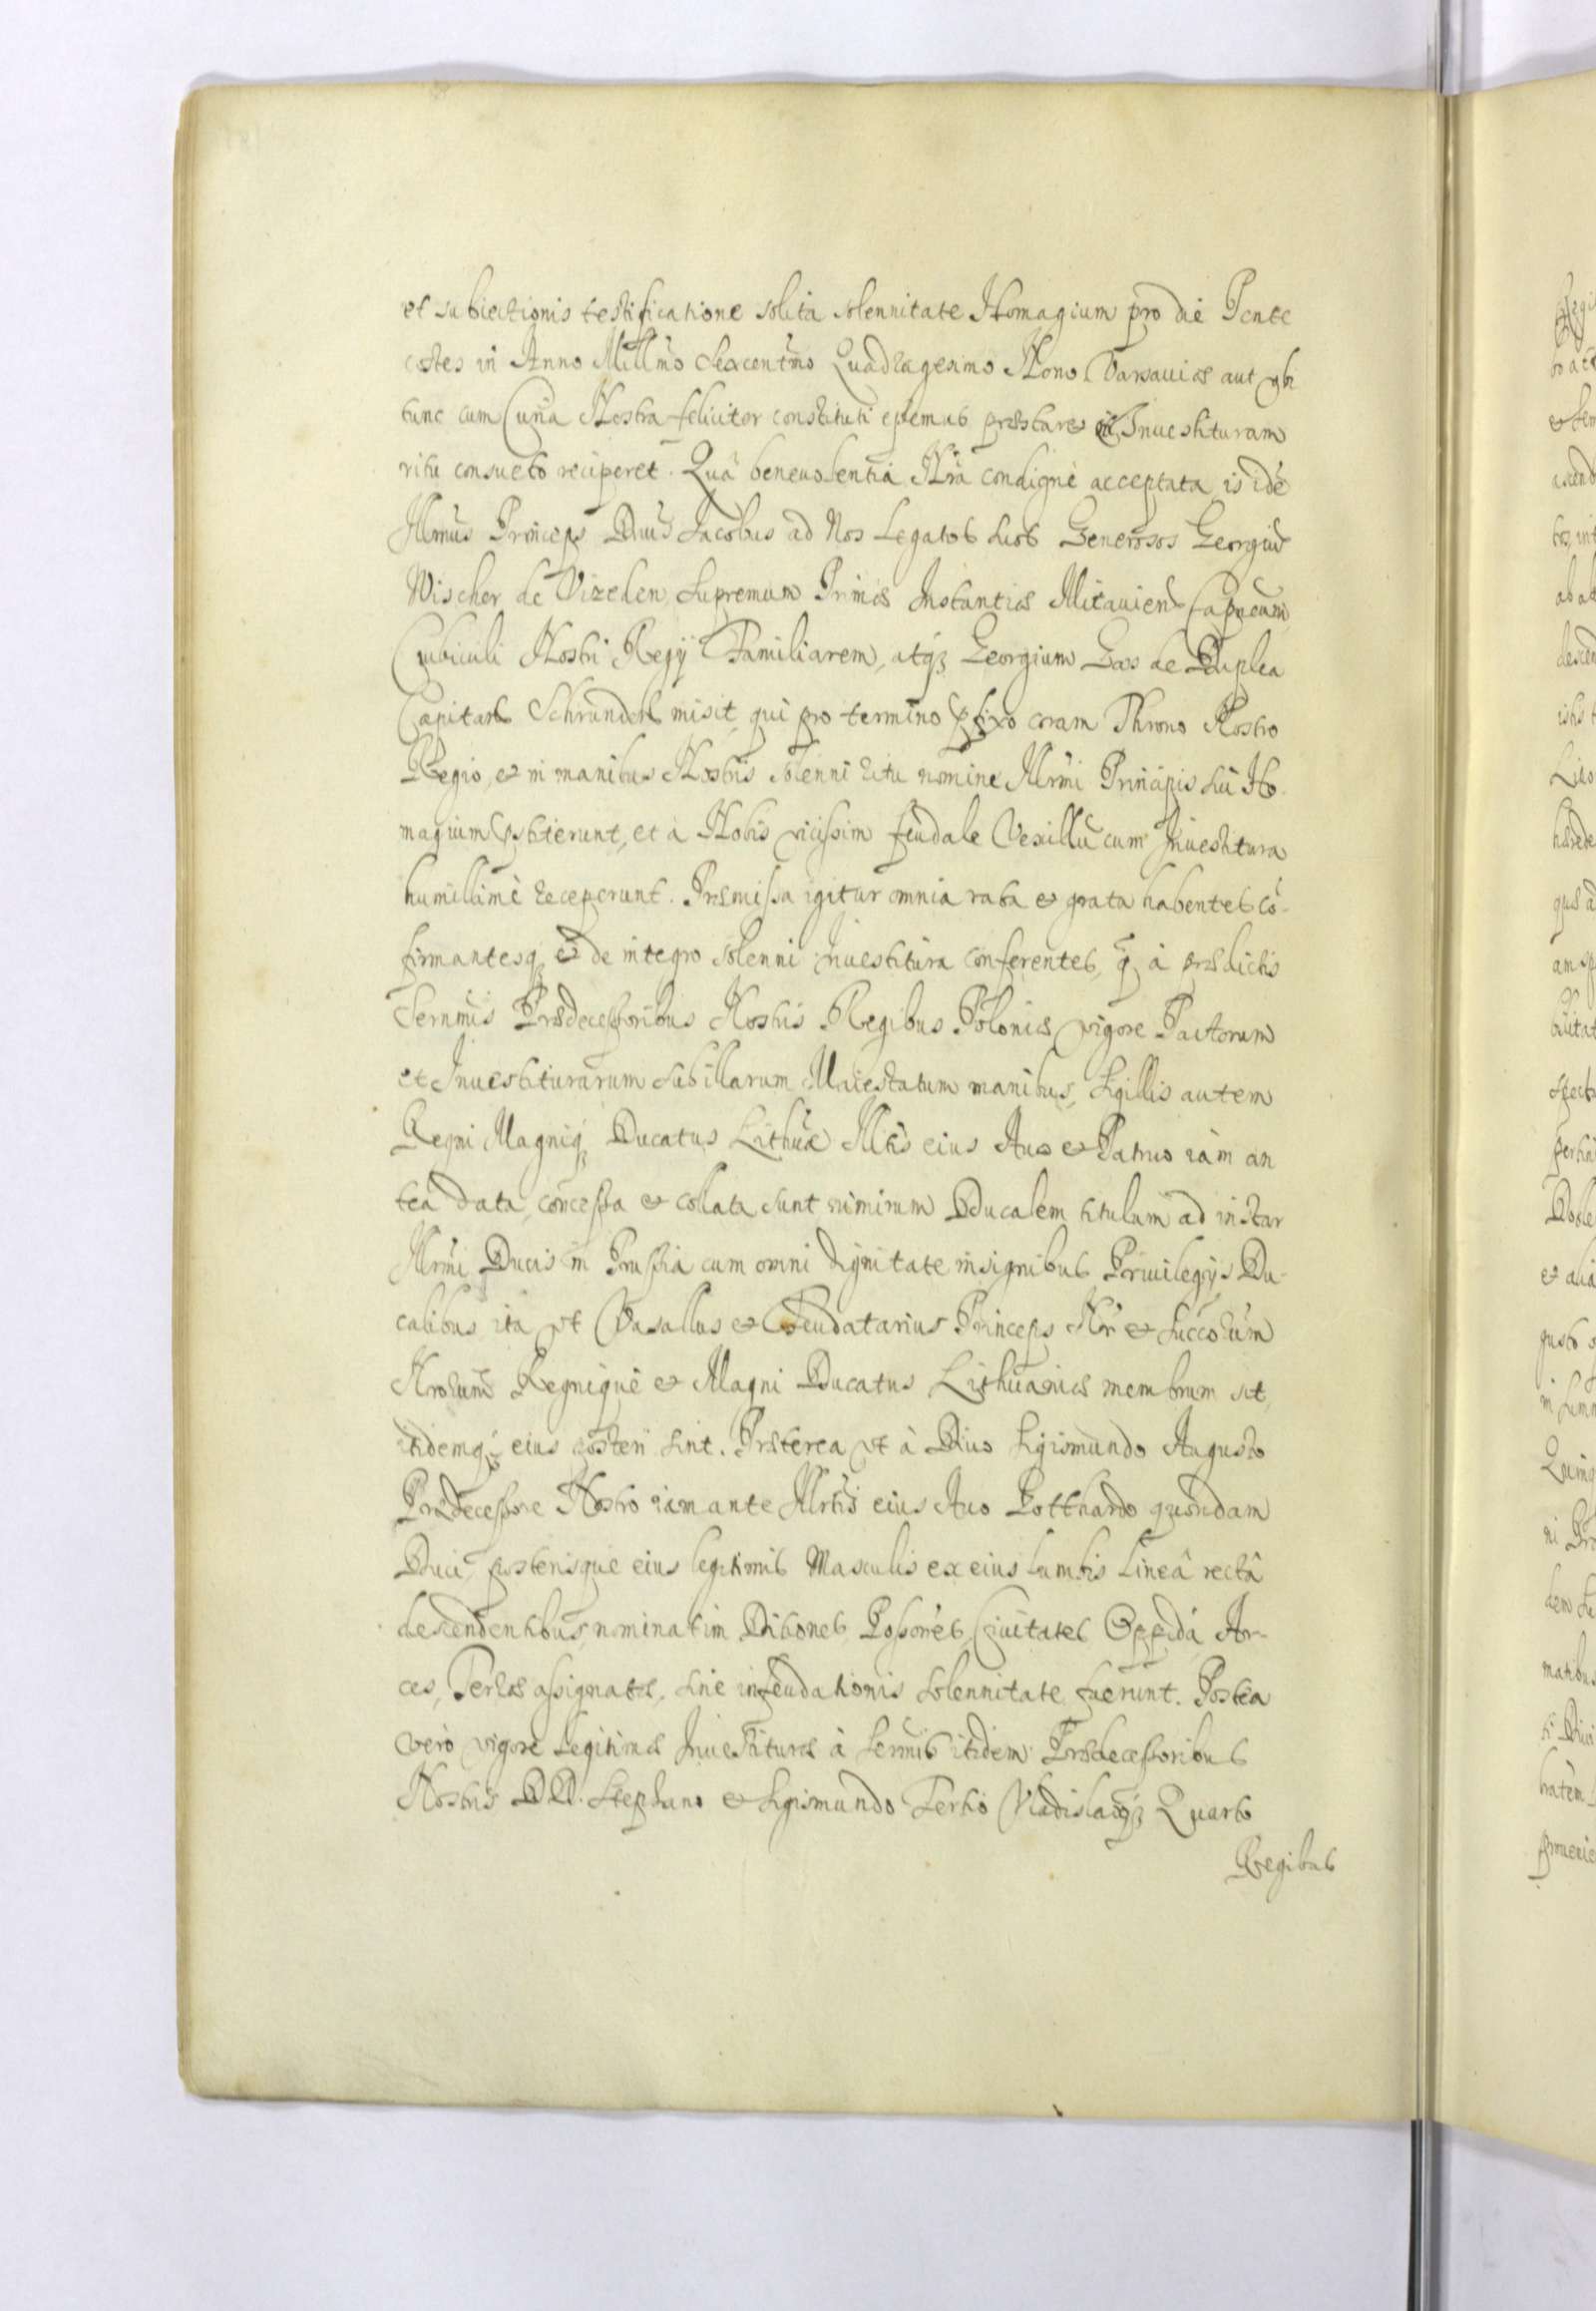 et subiectionis testificatione solita solennitate Homagium pro die Pente
costes in Anno Millmo Sexcentmo Quadragesimo Nono Varsauiæ aut ubi
tunc cum Curia Nostra feliciter constituti essemus præstaret et Inuestituram
ritu consueto reciperet. Quâ beneuolentiâ Nrâ condignè acceptata is idẽ
Illmus Princeps Dnus Jacobus ad Nos Legatos suos Generosos Georgiũ
Vischer de Vizelen, Supremum Primæ Instantiæ Mitauiens Capneum,
Cubiculi Nostri Regÿ Familiarem, atq; Georgium Gos de Duplea
Capitan Schrunden misit, qui pro termino pfixo coram Throno Nostro
Regio, et in manibus Nostris solenni ritu nomine Illrmi Principis sui Ho-
magium pstiterunt, et à Nobis vicissim feudale Vexillũ cum Inuestitura
humillimè receperunt. Præmissa igitur omnia rata et grata habentes cõ-
firmantesq; et de integro solenni inuestitura conferentes, q; à prædictis
Sernmis Prædecessoribus Nostris Regibus Poloniæ vigore Pactorum
et Inuestiturarum sub illarum Maiestatum manibus, Sigillis autem
Regni Magniq; Ducatus Lithuæ Illtis eius Auo et Patruo iàm an
tea data, concessa et collata sunt nimirum Ducalem titulum ad instar
Illrmi Ducis in Prussia cum omni dignitate insignibus Priuilegÿs Du-
calibus ita vt Vasallus et Feudatarius Princeps Nr et Succorũm
Nrorum Regnique et Magni Ducatus Lithuaniæ membrum sit,
itidemq; eius posteri sint. Præterea vt à Diuo Sigismundo Augusto
Prædecessore Nostro iam ante Illrtis eius Auo Gotthardo quondam
Duci posterisque eius legitimis Masculis ex eius lumbis lineâ rectâ
descendentibus, nominatim Ditiones Possoes Ciuitates Oppida Ar-
ces, Terræ assignatæ, sine infeudationis solennitate fuerunt. Postea
verò vigore legitimæ Inuestituræ à Sermis itidem Prædecessoribus
Nostris DD. Stephano et Sigismundo Tertio Vladislaoq; Quarto
Regibus